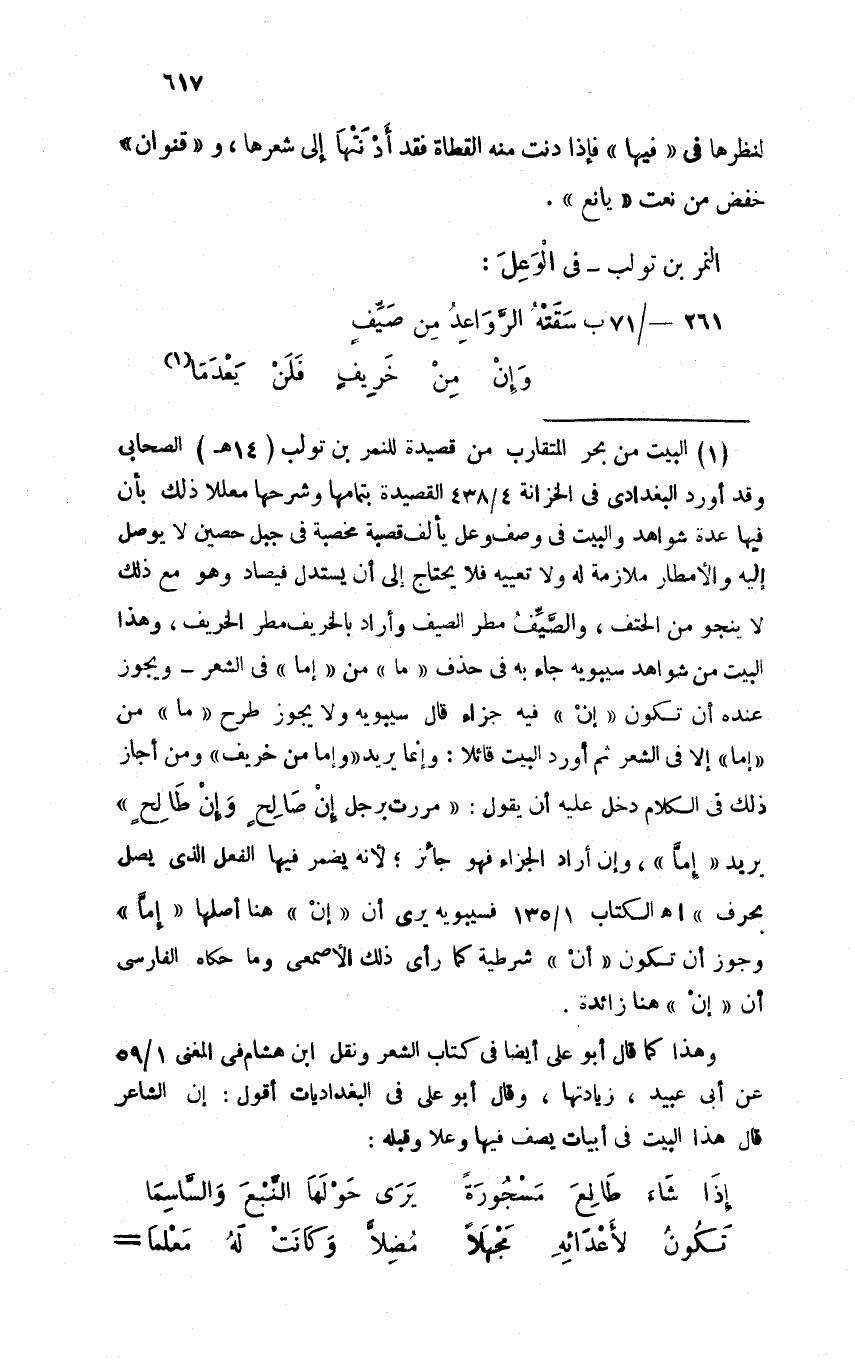 ٦١٧
لنظرها فى « فيها » فإذا دنت منه القطاة فقد أَدْنَتْهَا إلى شعرها ، و « قنوان »
خفض من نعت « يانع » .
النمر بن تولب – فى الْوَعِلَ :
٢٦١ – /٧١ب سَقَتْهُ الرَّوَاعِدُ مِن صَيِّفٍ
وَإِنْ مِنْ خَرِيفٍ فَلَنْ يَعْدَمَا(١)
(١) البيت من بحر المتقارب من قصيدة للنمر بن تولب ( ١٤هـ ) الصحابى
وقد أورد البغدادى فى الخزانة ٤٣٨/٤ القصيدة بتمامها وشرحها معللا ذلك بأن
فيها عدة شواهد والبيت فى وصف وعل يألف قصبة مخصبة فى جبل حصين لا يوصل
إليه والأمطار ملازمة له ولا تعييه فلا يحتاج إلى أن يستدل فيصاد وهو مع ذلك
لا ينجو من الحتف ، والصَّيِّفُ مطر الصيف وأراد بالخريف مطر الخريف ، وهذا
البيت من شواهد سيبويه جاء به فى حذف « ما » من « إما » فى الشعر – ويجوز
عنده أن تكون « إنْ » فيه جزاء قال سيبويه ولا يجوز طرح « ما » من
«إما» إلا فى الشعر ثم أورد البيت قائلا : وإنما يريد«وإما من خريف» ومن أجاز
ذلك فى الكلام دخل عليه أن يقول : « مررت برجل إِنْ صَالِحٍ وَإِنْ طَالِحٍ »
يريد « إِمَّا » ، وإن أراد الجزاء فهو جائز ؛ لأنه يضمر فيها الفعل الذى يصل
بحرف » اهـ الكتاب ١٣٥/١ فسيبويه يرى أن « إنْ » هنا أصلها « إِمَّا »
وجوز أن تكون « أنْ » شرطية كما رأى ذلك الأصمعى وما حكاه الفارسى
أن « إنْ » هنا زائدة .
وهذا كما قال أبو على أيضا فى كتاب الشعر ونقل ابن هشام فى المغنى ٥٩/١
عن أبى عبيد ، زيادتها ، وقال أبو على فى البغداديات أقول : إن الشاعر
قال هذا البيت فى أبيات يصف فيها وعلا وقبله :
إِذَا شَاءَ طَالِعَ مَسْجُورَةً يَرَى حَوْلَهَا النَّبْعَ وَالسَّاسِمَا
تَكُونُ لأَعْدَائِهِ مَجْهَلاً مُضِلاًّ وَكَانَتْ لَهُ مَعْلمَا=